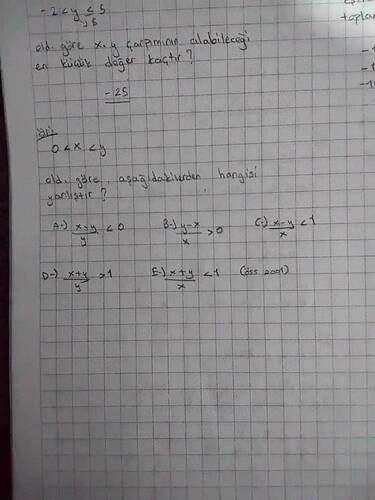 -2 < y ≤ 5
5
old. göre x.y çarpımının alabileceği
en küçük değer kaçtır?
-25
0 < x < y
old. göre aşağıdakilerden hangisi
yanlıştır?
A-) x-y/y < 0 B-) y-x/x > 0 C-) x-y/x < 1
D-) x+y/y > 1 E-) x+y/x < 1 (öss 2001)
topla